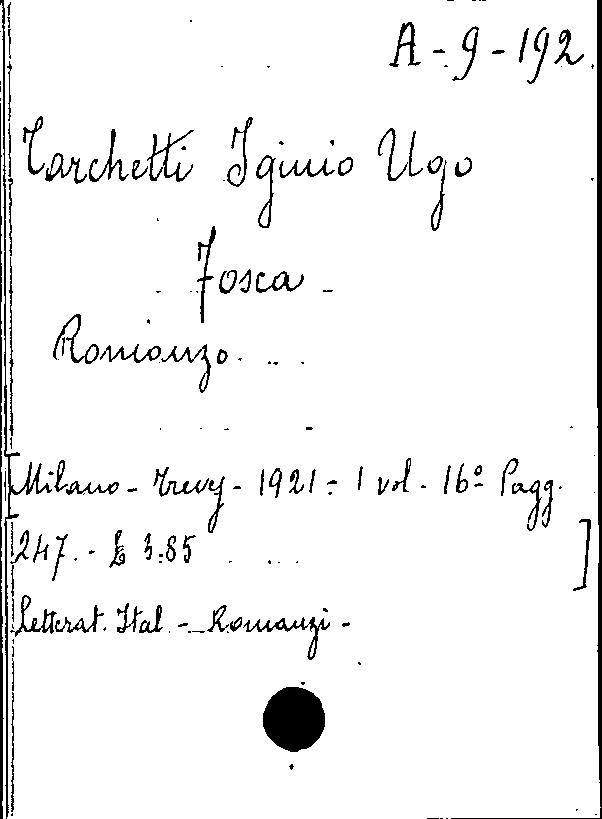 A-9-192
Tarchetti Iginio Ugo
Fosca -
Romanzo.
[Milano - Treves - 1921 - 1 vol. 16º Pagg.
247. - £ 3.85 ]
Letterat. Ital. - Romanzi -